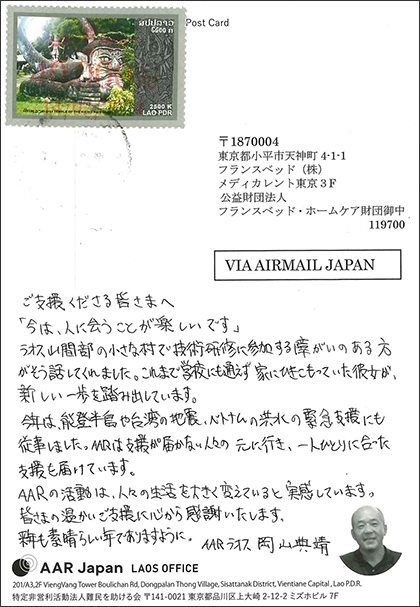 ສປປລາວ
Post Card
2500 K
LAO-PDR
〒1870004
東京都小平市天神町4-1-1
フランスベッド（株）
メディカレント東京３Ｆ
公益財団法人
フランスベッド・ホームケア財団御中
119700
VIA AIRMAIL JAPAN
ご支援くださる皆さまへ
「今は、人に会うことが楽しいです」
ラオス山間部の小さな村で技術研修に参加する障がいのある方
がそう話してくれました。これまで学校にも通えず家にひきこもっていた彼女が、
新しい一歩を踏み出しています。
今年は、能登半島や台湾の地震、ベトナムの洪水の緊急支援にも
従事しました。AARは支援が届かない人々の元に行き、一人ひとりに合った
支援も届けています。
AARの活動は、人々の生活を大きく変えていると実感しています。
皆さまの温かいご支援に心から感謝いたします。
新年も素晴らしい年でありますように。 AARラオス 岡山典靖
AAR Japan LAOS OFFICE
201/A3,2F ViengVang Tower Boulichan Rd, Dongpalan Thong Village, Sisattanak District, Vientiane Capital , Lao P.D.R.
特定非営利活動法人難民を助ける会 〒141-0021 東京都品川区上大崎 2-12-2 ミズホビル 7F